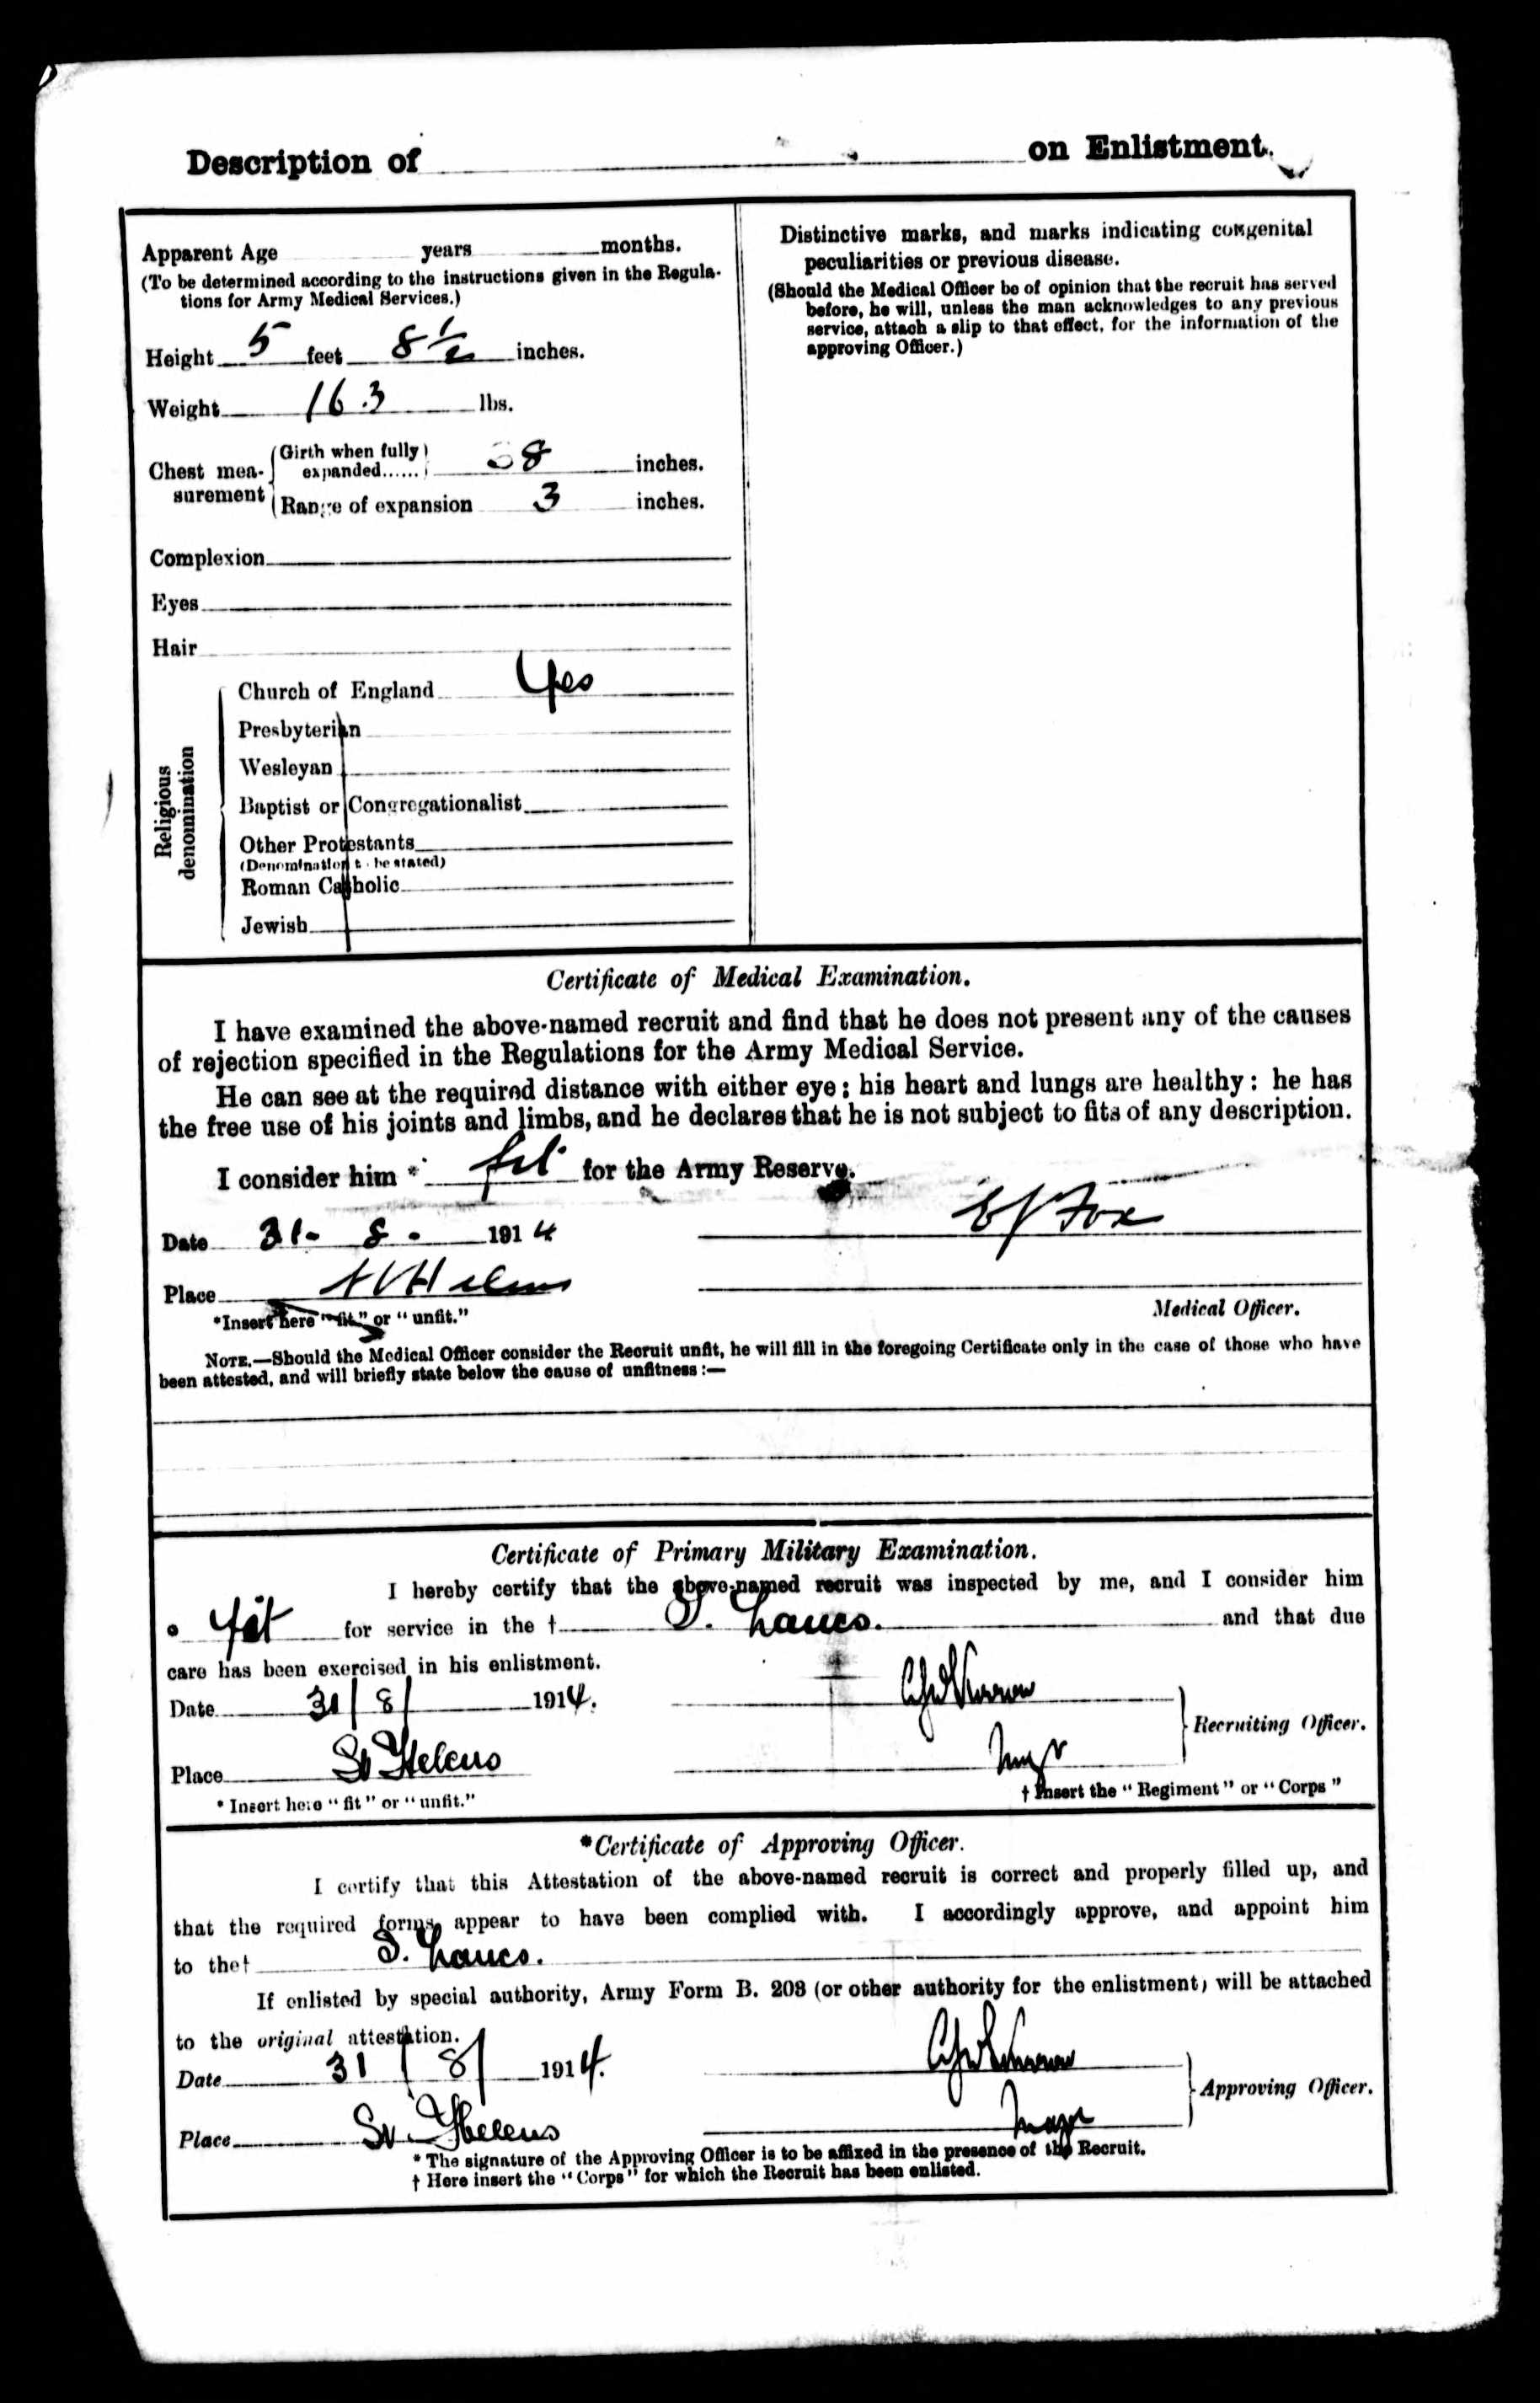 Description of on Enlistment.
Apparent Age years months.
(To be determined according to the instructions given in the Regula-
tions for Army Medical Services.)
Height 5 feet 8 1/2 inches.
Weight 163 lbs.
Chest mea-
surement
Girth when fully
expanded...... 38 inches.
Range of expansion 3 inches.
Complexion
Eyes
Hair
Religious
denomination
Church of England Yes
Presbyterian
Wesleyan
Baptist or Congregationalist
Other Protestants
(Denomination to be stated)
Roman Catholic
Jewish
Distinctive marks, and marks indicating congenital
peculiarities or previous disease.
(Should the Medical Officer be of opinion that the recruit has served
before, he will, unless the man acknowledges to any previous
service, attach a slip to that effect, for the information of the
approving Officer.)
Certificate of Medical Examination.
I have examined the above-named recruit and find that he does not present any of the causes
of rejection specified in the Regulations for the Army Medical Service.
He can see at the required distance with either eye; his heart and lungs are healthy: he has
the free use of his joints and limbs, and he declares that he is not subject to fits of any description.
I consider him * fit for the Army Reserve.
Date 31- 8. 1914 Fox
Place St Helens
Medical Officer.
*Insert here "fit" or "unfit."
NOTE.—Should the Medical Officer consider the Recruit unfit, he will fill in the foregoing Certificate only in the case of those who have
been attested, and will briefly state below the cause of unfitness :—
Certificate of Primary Military Examination.
I hereby certify that the above-named recruit was inspected by me, and I consider him
* fit for service in the † S. Lancs. and that due
care has been exercised in his enlistment.
Date 31/8/ 1914.
Recruiting Officer.
Place St Helens
* Insert here "fit" or "unfit."
† Insert the "Regiment" or "Corps"
*Certificate of Approving Officer.
I certify that this Attestation of the above-named recruit is correct and properly filled up, and
that the required forms appear to have been complied with. I accordingly approve, and appoint him
to the† S. Lancs.
If enlisted by special authority, Army Form B. 203 (or other authority for the enlistment) will be attached
to the original attestation.
Date 31/8/ 1914.
Approving Officer.
Place St. Helens Major
* The signature of the Approving Officer is to be affixed in the presence of the Recruit.
† Here insert the "Corps" for which the Recruit has been enlisted.